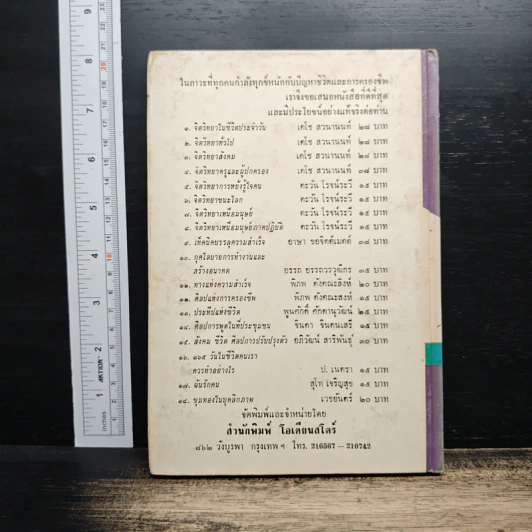 ในภาวะที่ทุกคนกำลังทุกข์หนักกับปัญหาชีวิตและการครองชีพ
เราจึงขอเสนอหนังสือที่ดีที่สุด
และมีประโยชน์อย่างแท้จริงต่อท่าน
๑. จิตวิทยาในชีวิตประจำวัน เดโช สวนานนท์ ๒๘ บาท
๒. จิตวิทยาทั่วไป เดโช สวนานนท์ ๒๘ บาท
๓. จิตวิทยาสังคม เดโช สวนานนท์ ๒๘ บาท
๔. จิตวิทยาครูและผู้ปกครอง เดโช สวนานนท์ ๓๘ บาท
๕. จิตวิทยาการหยั่งรู้ใจคน ตะวัน โรจน์ระวี ๑๕ บาท
๖. จิตวิทยาชนะโลก ตะวัน โรจน์ระวี ๑๕ บาท
๗. จิตวิทยาเหนือมนุษย์ ตะวัน โรจน์ระวี ๑๕ บาท
๘. จิตวิทยาเหนือมนุษย์ภาคปฏิบัติ ตะวัน โรจน์ระวี ๑๕ บาท
๙. เท็คนิคบรรลุความสำเร็จ อาษา ขอจิตต์เมตต์ ๓๘ บาท
๑๐. กุศโลบายการทำงานและ
สร้างอนาคต อรรถ อรรถวรวุฒิกร ๓๕ บาท
๑๑. ทางแห่งความสำเร็จ พิภพ ตังคณะสิงห์ ๒๐ บาท
๑๒. ศิลปแห่งการครองชีพ พิภพ ตังคณะสิงห์ ๑๕ บาท
๑๓. ประทีปแห่งชีวิต พูนศักดิ์ ศักดานุวัฒน์ ๒๕ บาท
๑๔. ศิลปการพูดในที่ประชุมชน จินดา จินตนเสรี ๑๕ บาท
๑๕. สังคม ชีวิต ศิลปการปรับปรุงตัว อภิวัฒน์ สาริพันธุ์ ๓๐ บาท
๑๖. ๓๖๕ วันในชีวิตคนเรา
ควรทำอย่างไร ป. เนตรา ๑๕ บาท
๑๗. ฉันรักคน สุโท เจริญสุข ๑๕ บาท
๑๘. ขุมทองในยุคลิกภาพ เวชยันตร์ ๒๐ บาท
จัดพิมพ์และจำหน่ายโดย
สำนักพิมพ์ โอเดียนสโตร์
๘๖๒ วังบูรพา กรุงเทพ ฯ โทร. 216567—210742
9
8
7
6
5
4
3
2
1
inches